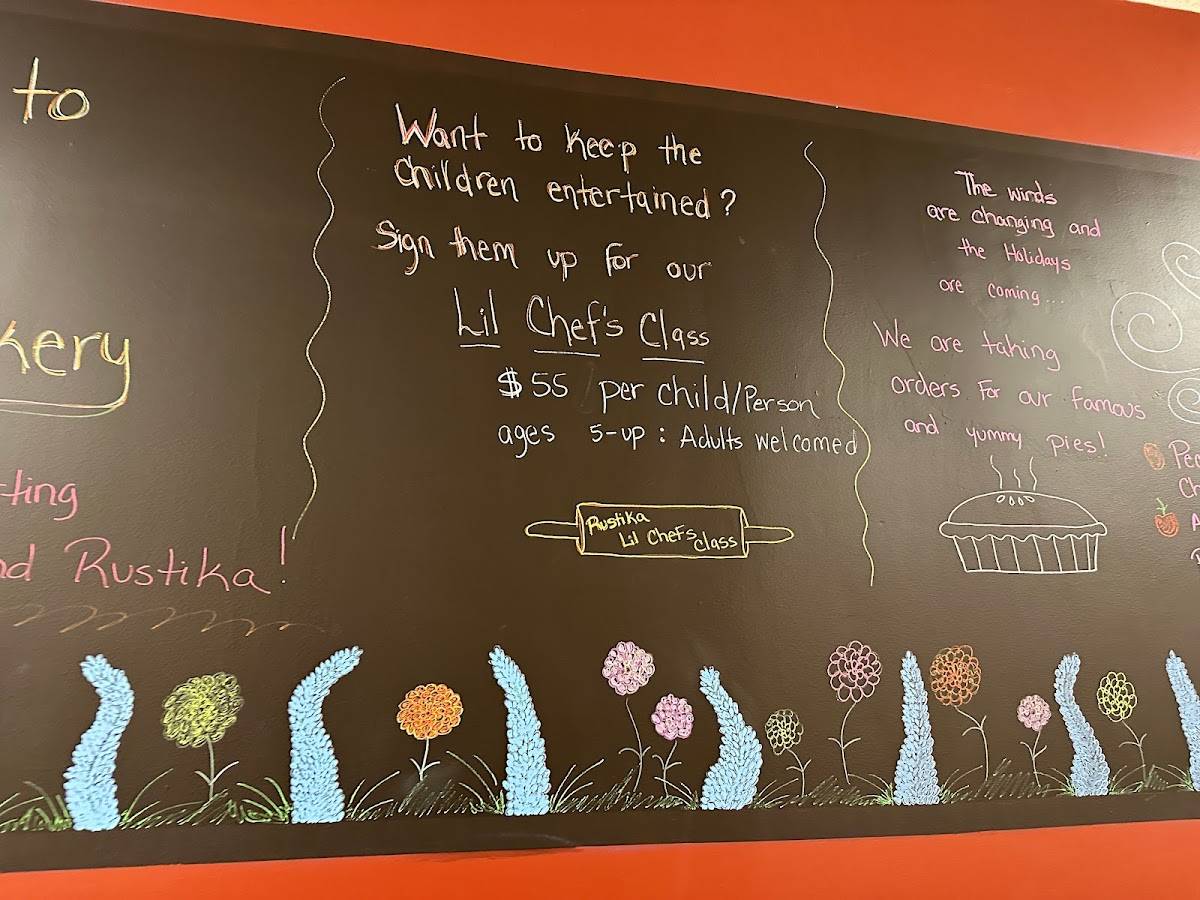 to
kery
ting
nd Rustika!
Want to Keep the
Children entertained?
Sign them up for our
Lil Chef's Class
$55 per child/Person
ages 5-up : Adults welcomed
Rustika
Lil Chefs
Class
The winds
are changing and
the Holidays
are coming...
We are taking
orders for our famous
and yummy pies!
Pec
Ch
A